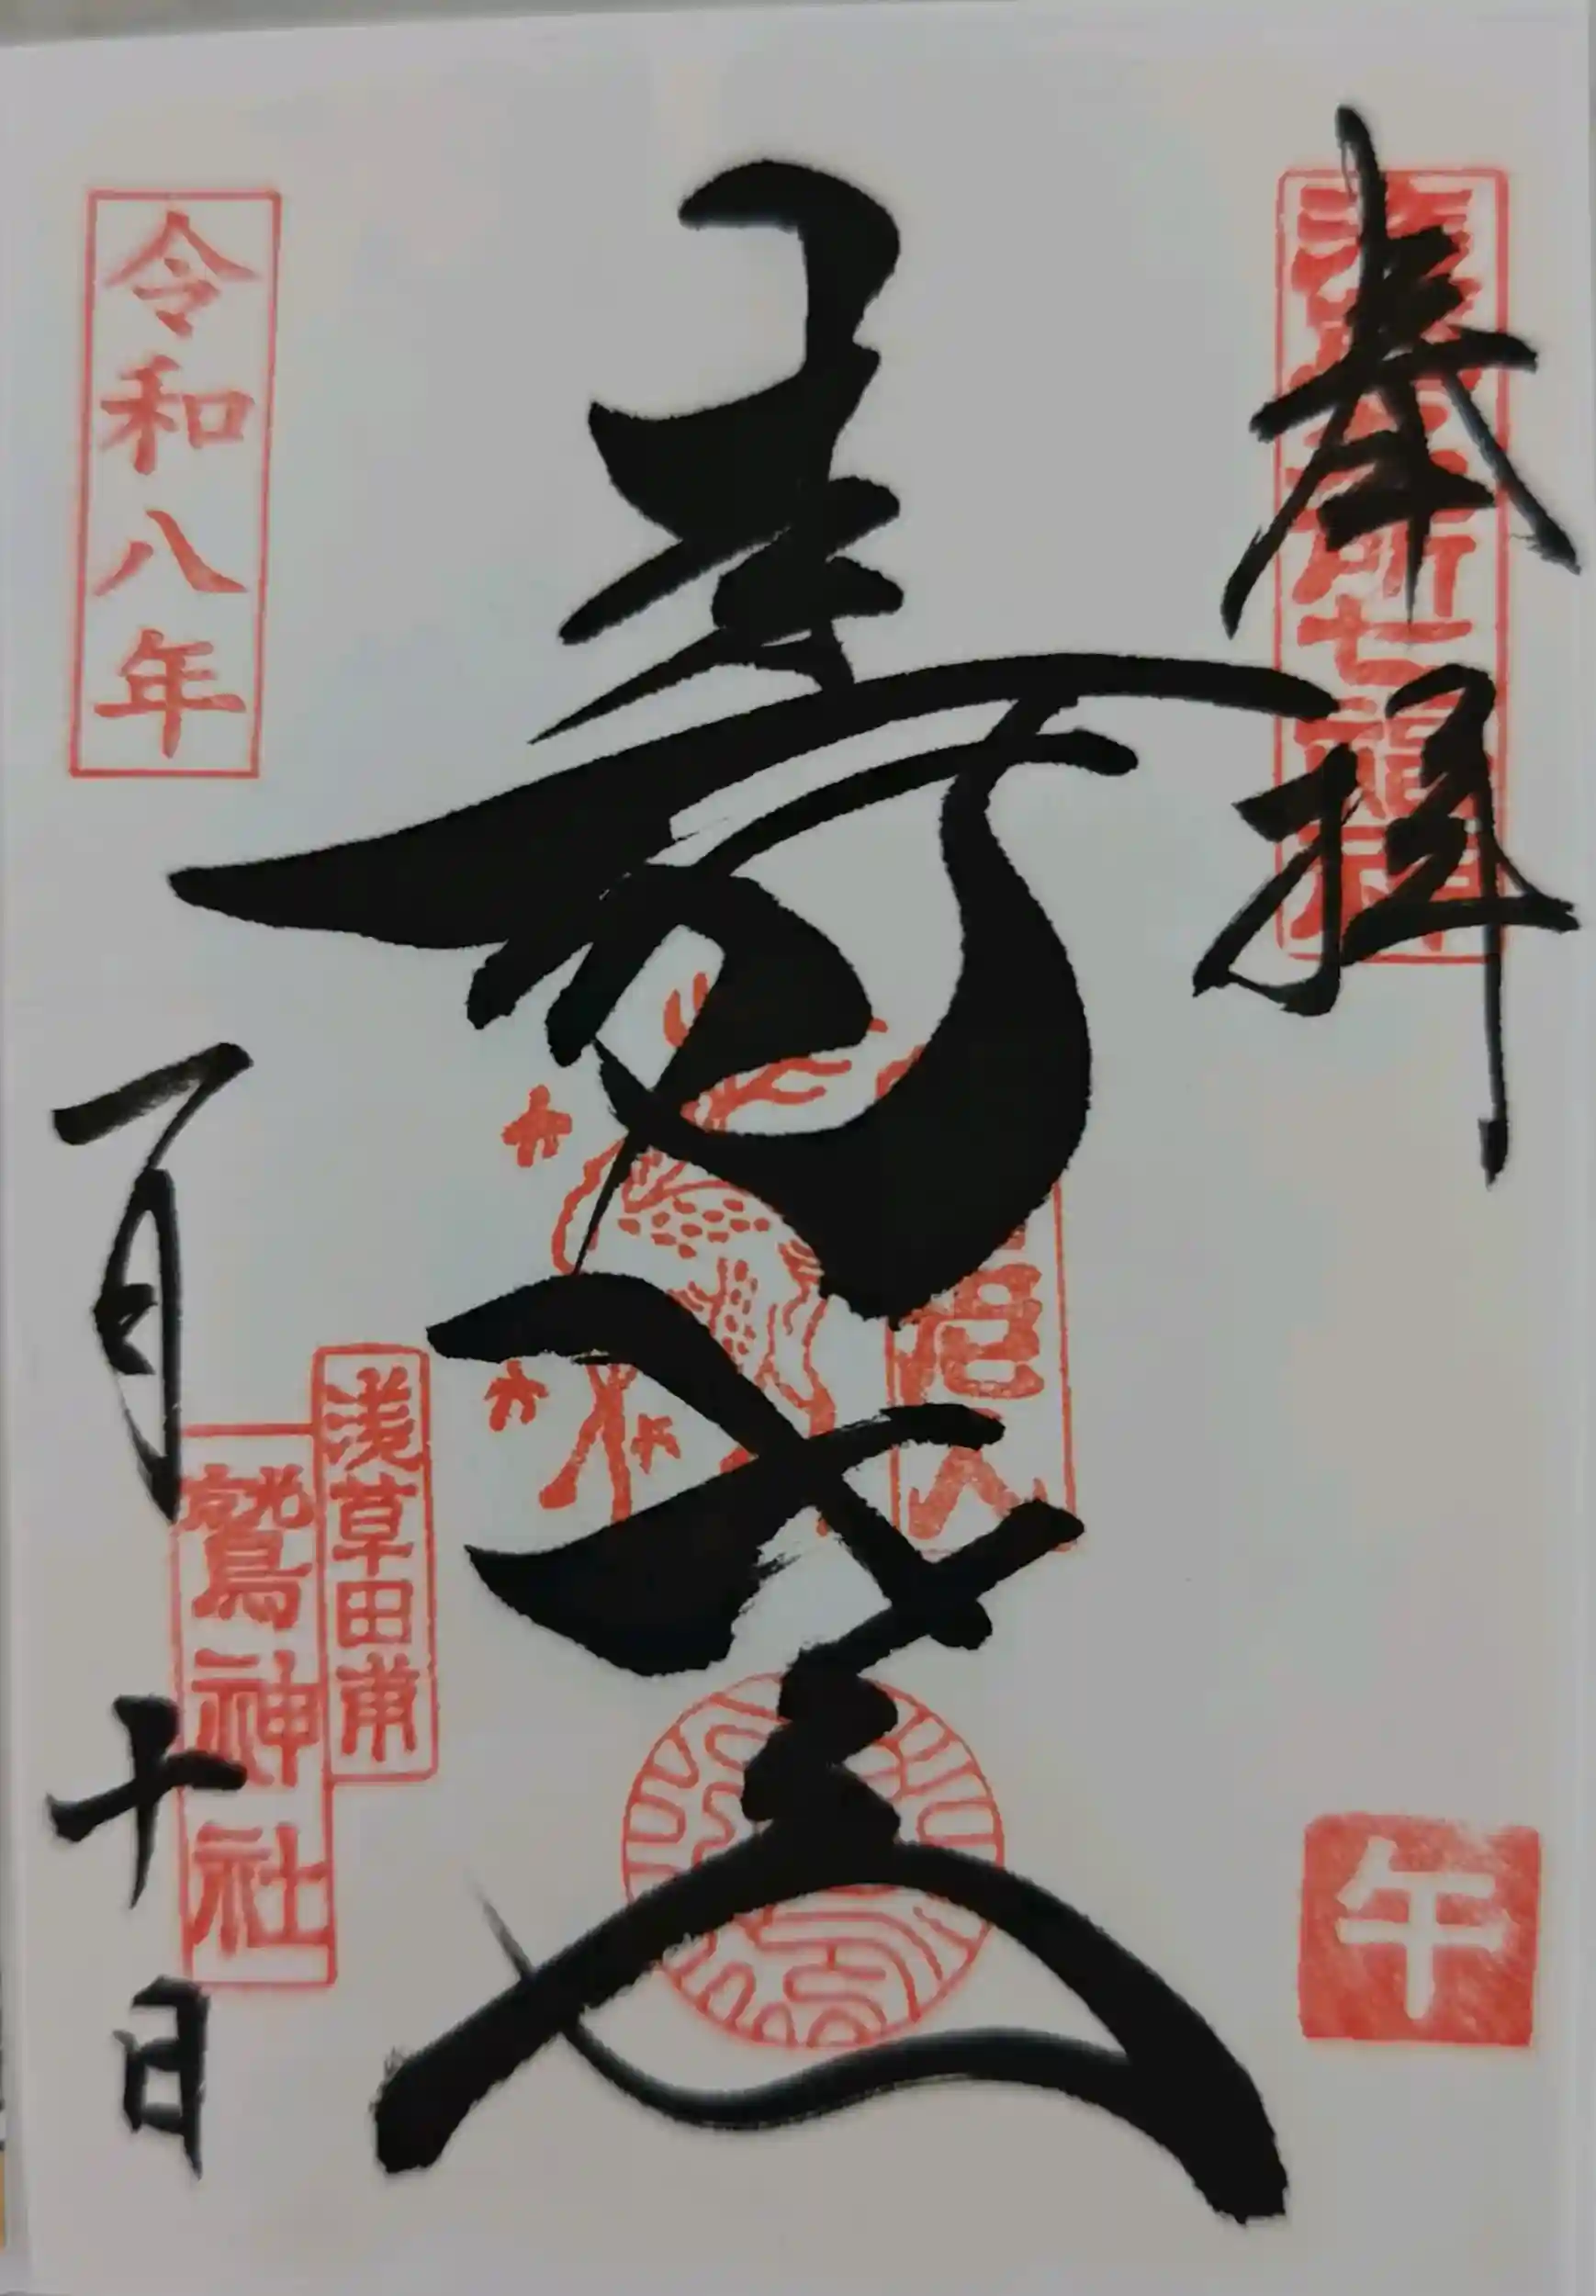 奉拝
浅草名所七福神
午
寿老人
令和八年
一月十日
浅草田甫
鷲神社